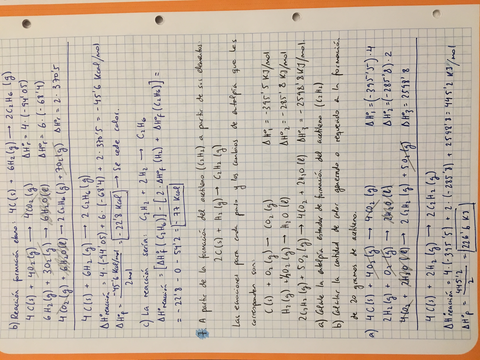 b) Reacción formación etano: 4C(s) + 6H₂(g) → 2C₂H₆(g)
4C(s) + 4O₂(g) → 4CO₂(g) ΔH°r = 4·(-94'05)
6H₂(g) + 3O₂(g) → 6H₂O(l) ΔH°r = 6·(-68'4)
4CO₂(g) + 6H₂O(l) → 2C₂H₆(g) + 7O₂(g) ΔH°r = 2·370'5
4C(s) + 6H₂(g) → 2C₂H₆(g)
ΔH°reacción = 4·(-94'05) + 6·(-68'4) + 2·370'5 = -45'6 Kcal/mol
ΔH°f = -45'6 Kcal/mol / 2mol = -22'8 Kcal → Se cede calor.
c) La reacción sería: C₂H₂ + 2H₂ → C₂H₆
ΔH°reacción = [ΔH°f(C₂H₆)] - [2·ΔH°f(H₂) + ΔH°f(C₂H₂)] =
= -22'8 - 0 - 54'2 = -77 Kcal
7. A partir de la formación del acetileno (C₂H₂) a partir de sus elementos.
2C(s) + H₂(g) → C₂H₂(g)
Las ecuaciones para cada paso y los cambios de entalpía que les
corresponden son:
C(s) + O₂(g) → CO₂(g) ΔH°1 = -395'5 KJ/mol
H₂(g) + ½O₂(g) → H₂O(l) ΔH°2 = -285'8 KJ/mol
2C₂H₂(g) + 5O₂(g) → 4CO₂ + 2H₂O(l) ΔH°3 = -2598'8 KJ/mol
a) Calcule la entalpía estándar de formación del acetileno (C₂H₂)
b) Calcular la cantidad de calor generado o requerido a la formación
de 20 gramos de acetileno.
a) 4C(s) + 4O₂(g) → 4CO₂(g) ΔH°1 = (-395'5)·4
2H₂(g) + O₂(g) → 2H₂O(l) ΔH°2 = (-285'8)·2
4CO₂ + 2H₂O(l) → 2C₂H₂(g) + 5O₂(g) ΔH°3 = 2598'8
4C(s) + 2H₂(g) → 2C₂H₂(g)
ΔH°reacción = 4·(-395'5) + 2·(-285'8) + 2598'8 = 445'2 KJ/mol
ΔH°f = 445'2 / 2 = 222'6 KJ